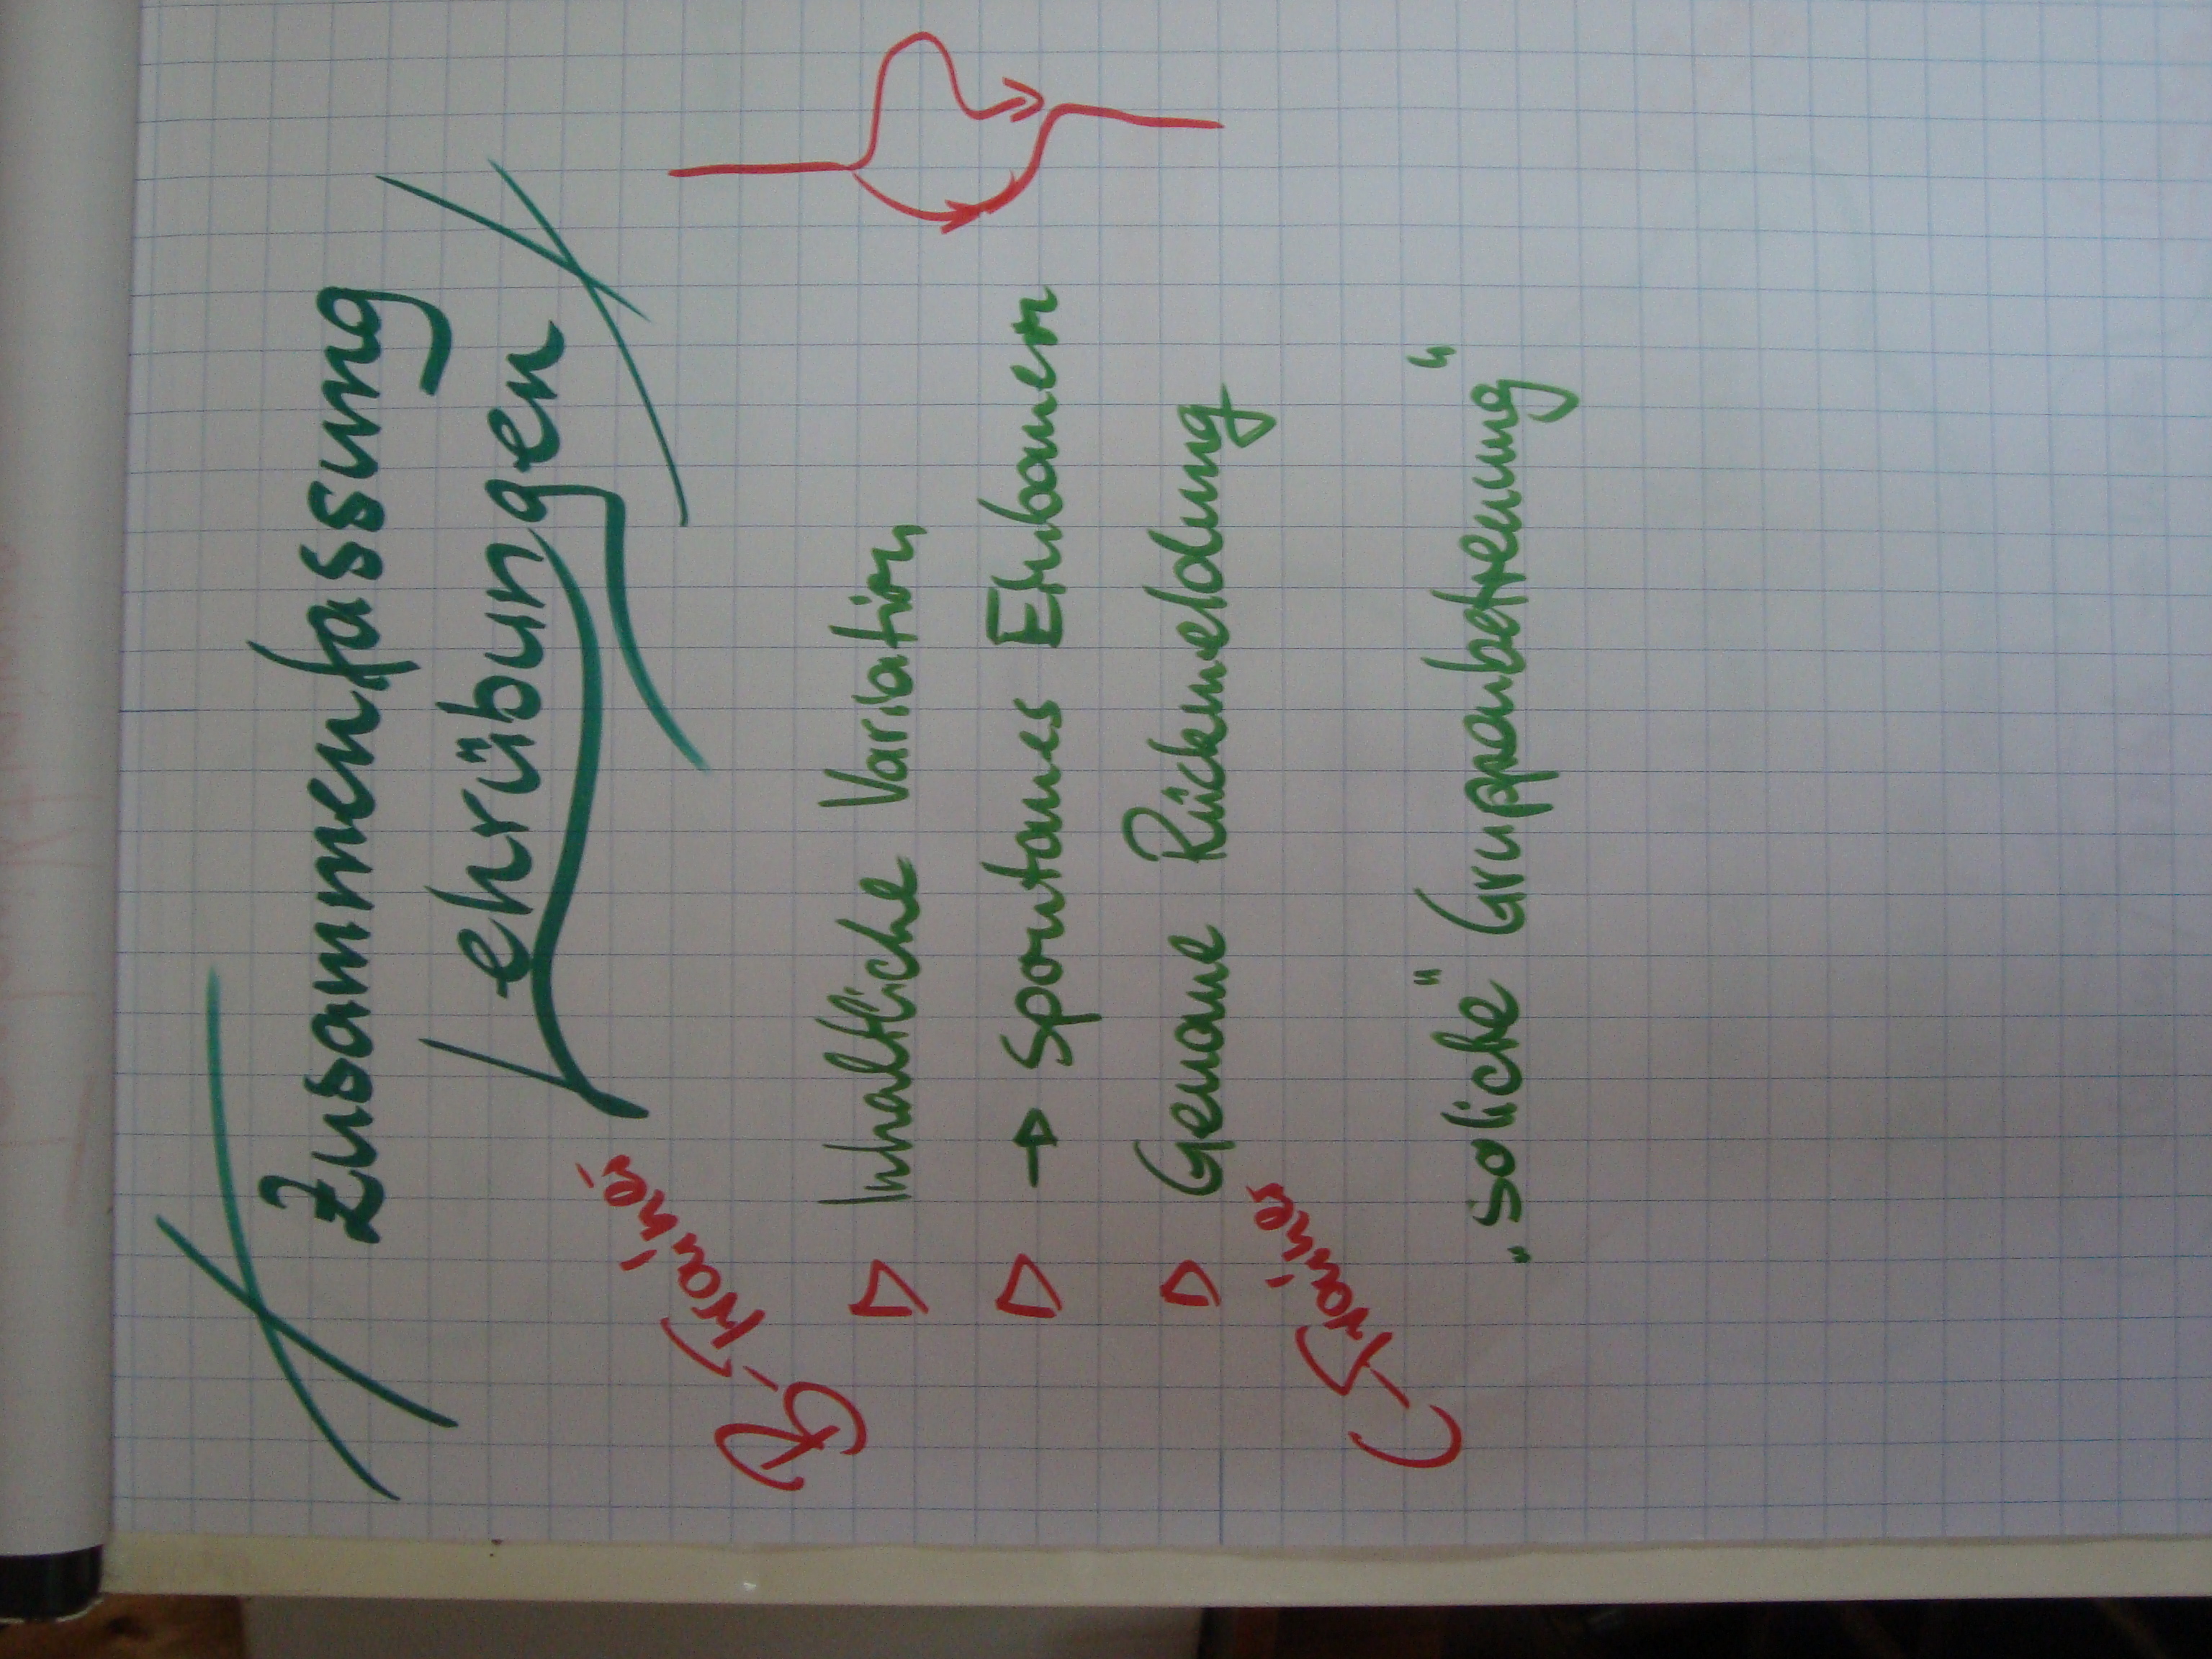 Zusammenfassung
Lehrübungen
B-Trainer
Inhaltliche Variation
→ Spontanes Einbauen
Genaue Rückmeldung
C-Trainer
Gruppenbetreuung"